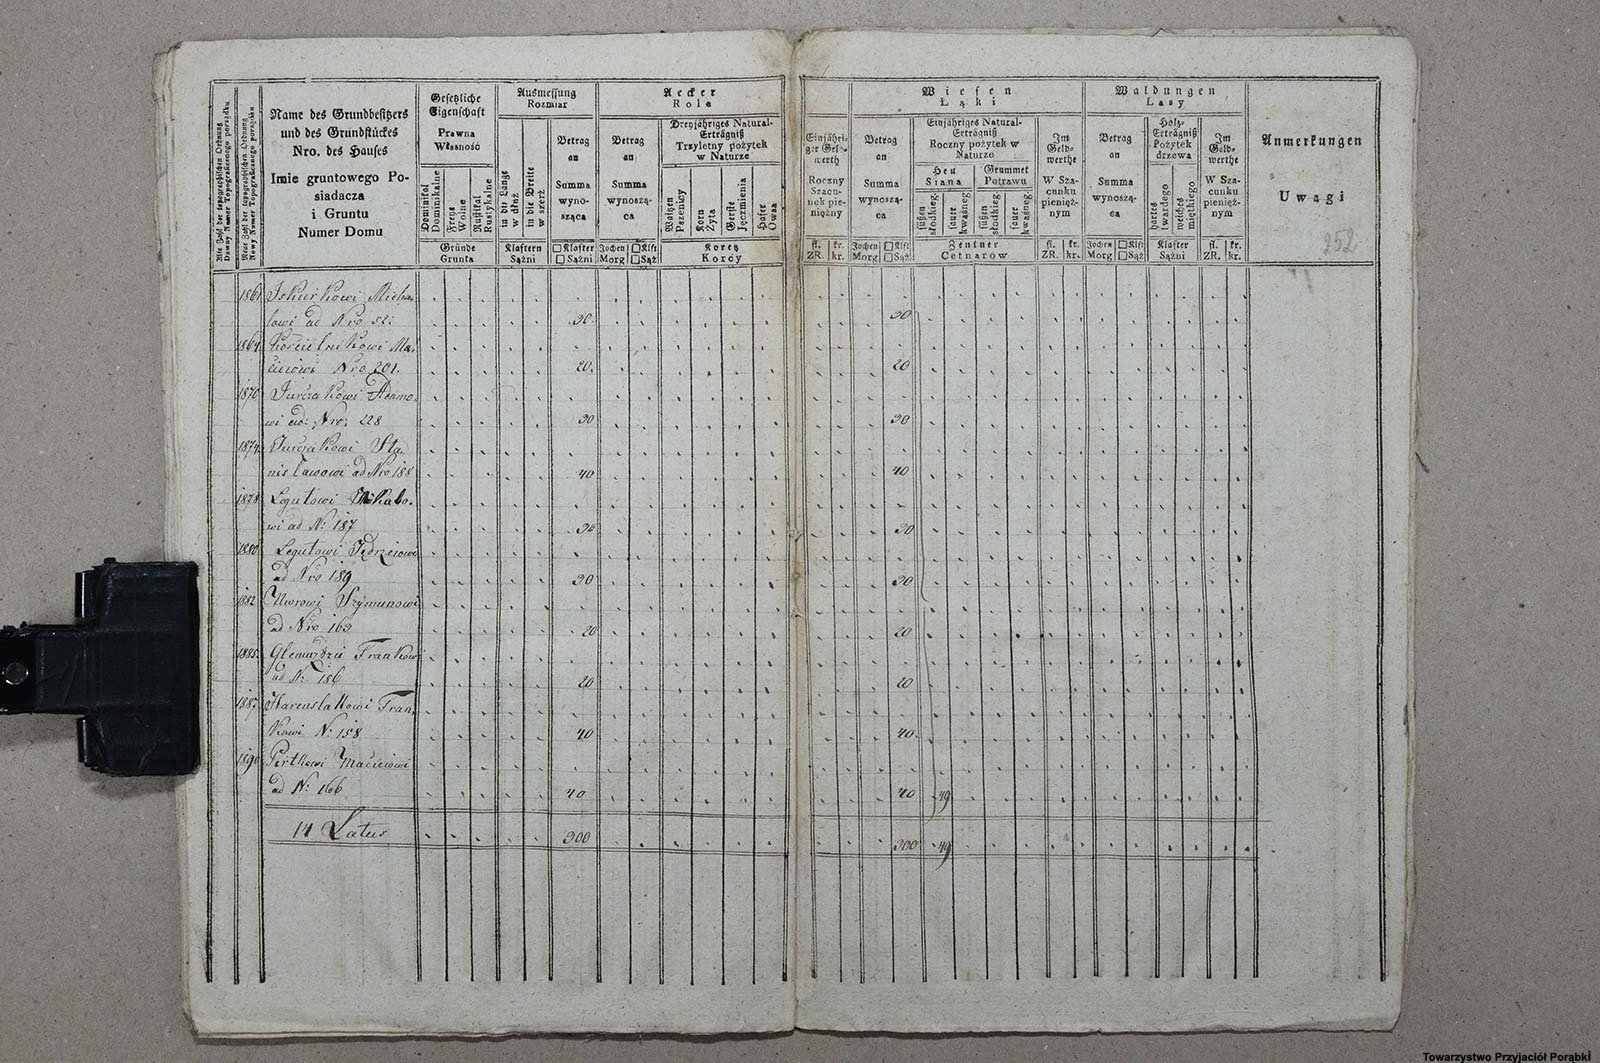 Alte Zahl der topographischen Ordnung
Dawny Numer Topograficznego porządku
Neue Zahl der topographischen Ordnung
Nowy Numer Topograficznego porządku
Name des Grundbesitzers
und des Grundstückes
Nro. des Hauses
Imie gruntowego Po-
siadacza
i Gruntu
Numer Domu
Gesetzliche
Eigenschaft
Prawna
Własność
Dominikal
Dominikalne
Freye
Wolne
Rustikal
Rustykalne
Gründe
Grunta
Ausmessung
Rozmiar
in die Länge
w dłuż
in die Breite
w szerz
Klaftern
Sążni
Betrag
an
Summa
wyno-
sząca
□ Klafter
□ Sążni
Aecker
Role
Betrag
an
Summa
wynoszą-
ca
Jochen □ Klft
Morg □ Sąż
Dreyjähriges Natural-
Erträgniß
Trzyletny pożytek
w Naturze
Waitzen
Pszenicy
Korn
Żyta
Gerste
Jęczmienia
Hafer
Owsa
Koretz
Korcy
Einjähri-
ger Geld-
werth
Roczny
Szacu-
nek pie-
niężny
fl. kr.
ZR. kr.
Wiesen
Łąki
Betrag
an
Summa
wynoszą-
ca
Jochen □ Klft
Morg □ Sąż
Einjähriges Natural-
Erträgniß
Roczny pożytek w
Naturze
Heu
Siana
Grummet
Potrawu
süßen
słodkieg.
sauer
kwaśneg.
süßen
słodkieg.
sauer
kwaśneg.
Zentner
Cetnarów
Im
Geld-
werthe
W Sza-
cunku
pienięż-
nym
fl. kr.
ZR. kr.
Waldungen
Lasy
Betrag
an
Summa
wynoszą-
ca
Jochen □ Klft
Morg □ Sąż
Holz-
Erträgniß
Pożytek
drzewa
hartes
twardego
weiches
miętkiego
Klafter
Sążni
Im
Geld-
werthe
W Sza-
cunku
pienięż-
nym
fl. kr.
ZR. kr.
Anmerkungen
Uwagi
252
1861
ad Nro 82. 30 30
1864
Nro 201. 20 20
1870 Jurczakowi Adamo-
wi ad Nro: 228 30 30
1874 Jurczakowi Sta-
nisławowi ad Nro 188 40 40
1878 Legutowi
wi ad N: 187 30 30
1880 Legutowi Jędrzeiowi
ad Nro 189 30 30
1882 Szymonowi
ad Nro 163 20 20
1885. Frankowi
ad N: 186 20 20
1887 Fran-
kowi N: 158 40 40
1890 Maciejowi
ad N: 166 40 40 49
14 Latus 300 300 49
Towarzystwo Przyjaciół Porąbki